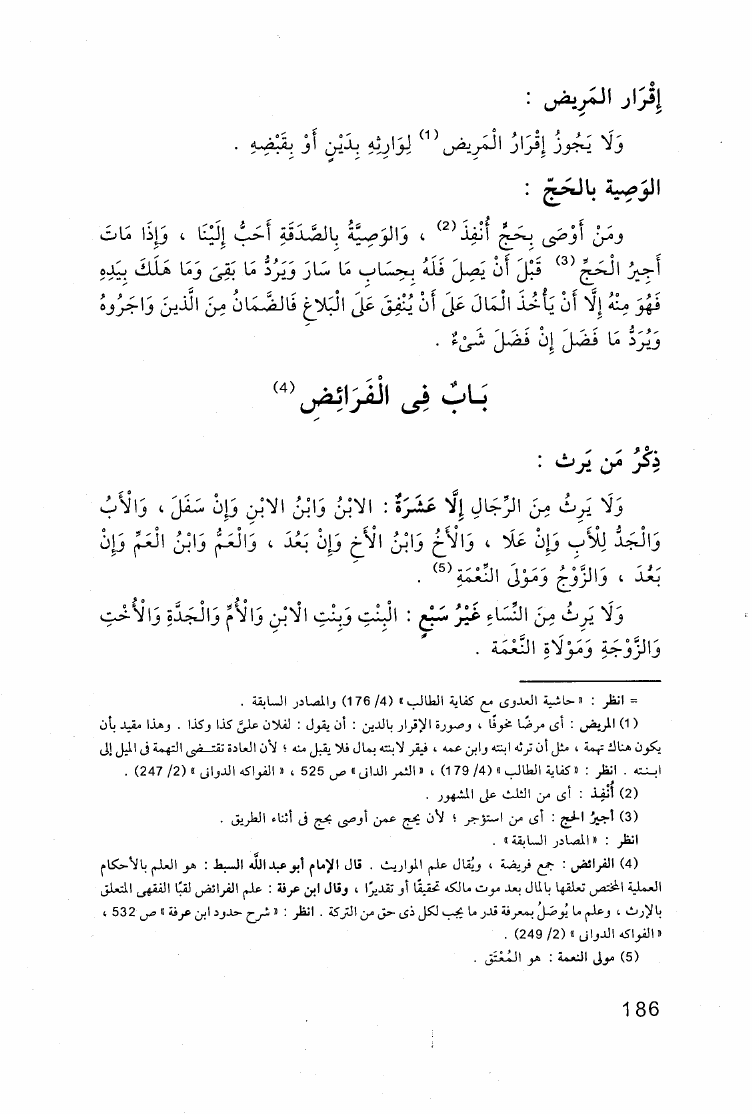 إِقْرَار المَرِيض :
وَلَا يَجُوزُ إِقْرَارُ الْمَرِيض (1) لِوَارِثِهِ بِدَيْنٍ أَوْ بِقَبْضِهِ .
الوَصِية بالحَجّ :
وَمَنْ أَوْصَى بِحَجٍّ أُنْفِذَ (2) ، وَالوَصِيَّةُ بِالصَّدَقَةِ أَحَبُّ إِلَيْنَا ، وَإِذَا مَاتَ
أَجِيرُ الْحَجِّ (3) قَبْلَ أَنْ يَصِلَ فَلَهُ بِحِسَابِ مَا سَارَ وَيَرُدُّ مَا بَقِىَ وَمَا هَلَكَ بِيَدِهِ
فَهُوَ مِنْهُ إِلَّا أَنْ يَأْخُذَ الْمَالَ عَلَى أَنْ يُنْفِقَ عَلَى الْبَلَاغِ فَالضَّمَانُ مِنَ الَّذِينَ وَاجَرُوهُ
وَيَرُدُّ مَا فَضَلَ إِنْ فَضَلَ شَىْءٌ .
بَابٌ فِى الْفَرَائِضِ (4)
ذِكْرُ مَن يَرث :
وَلَا يَرِثُ مِنَ الرِّجَالِ إِلَّا عَشَرَةٌ : الابْنُ وَابْنُ الابْنِ وَإِنْ سَفَلَ ، وَالْأَبُ
وَالْجَدُّ لِلْأَبِ وَإِنْ عَلَا ، وَالْأَخُ وَابْنُ الْأَخِ وَإِنْ بَعُدَ ، وَالْعَمُّ وَابْنُ الْعَمِّ وَإِنْ
بَعُدَ ، وَالزَّوْجُ وَمَوْلَى النِّعْمَةِ (5) .
وَلَا يَرِثُ مِنَ النِّسَاءِ غَيْرُ سَبْعٍ : الْبِنْتِ وَبِنْتِ الْابْنِ وَالْأُمِّ وَالْجَدَّةِ وَالْأُخْتِ
وَالزَّوْجَةِ وَمَوْلَاةِ النَّعْمَة .
= انظر : « حاشية العدوى مع كفاية الطالب » (4/ 176) والمصادر السابقة .
(1) المريض : أى مرضًا مخوفًا ، وصورة الإقرار بالدين : أن يقول : لفلان علىّ كذا وكذا . وهذا مقيد بأن
يكون هناك تهمة ، مثل أن ترثه ابنته وابن عمه ، فيقر لابنته بمال فلا يقبل منه ؛ لأن العادة تقتضى التهمة فى الميل إلى
ابنته . انظر : « كفاية الطالب » (4/ 179) ، « الثمر الدانى » ص 525 ، « الفواكه الدوانى » (2/ 247) .
(2) أُنْفِذ : أى من الثلث على المشهور .
(3) أجيرُ الحج : أى من استؤجر ؛ لأن يحج عمن أوصى بحج فى أثناء الطريق .
انظر : « المصادر السابقة » .
(4) الفرائض : جمع فريضة ، ويُقال علم المواريث . قال الإمام أبو عبد الله السبط : هو العلم بالأحكام
العملية المختص تعلقها بالمال بعد موت مالكه تحقيقًا أو تقديرًا ، وقال ابن عرفة : علم الفرائض لقبًا الفقهى المتعلق
بالإرث ، وعلم ما يُوصَلُ بمعرفة قدر ما يجب لكل ذى حق من التركة . انظر : « شرح حدود ابن عرفة » ص 532 ،
« الفواكه الدوانى » (2/ 249) .
(5) مولى النعمة : هو المُعْتَق .
186